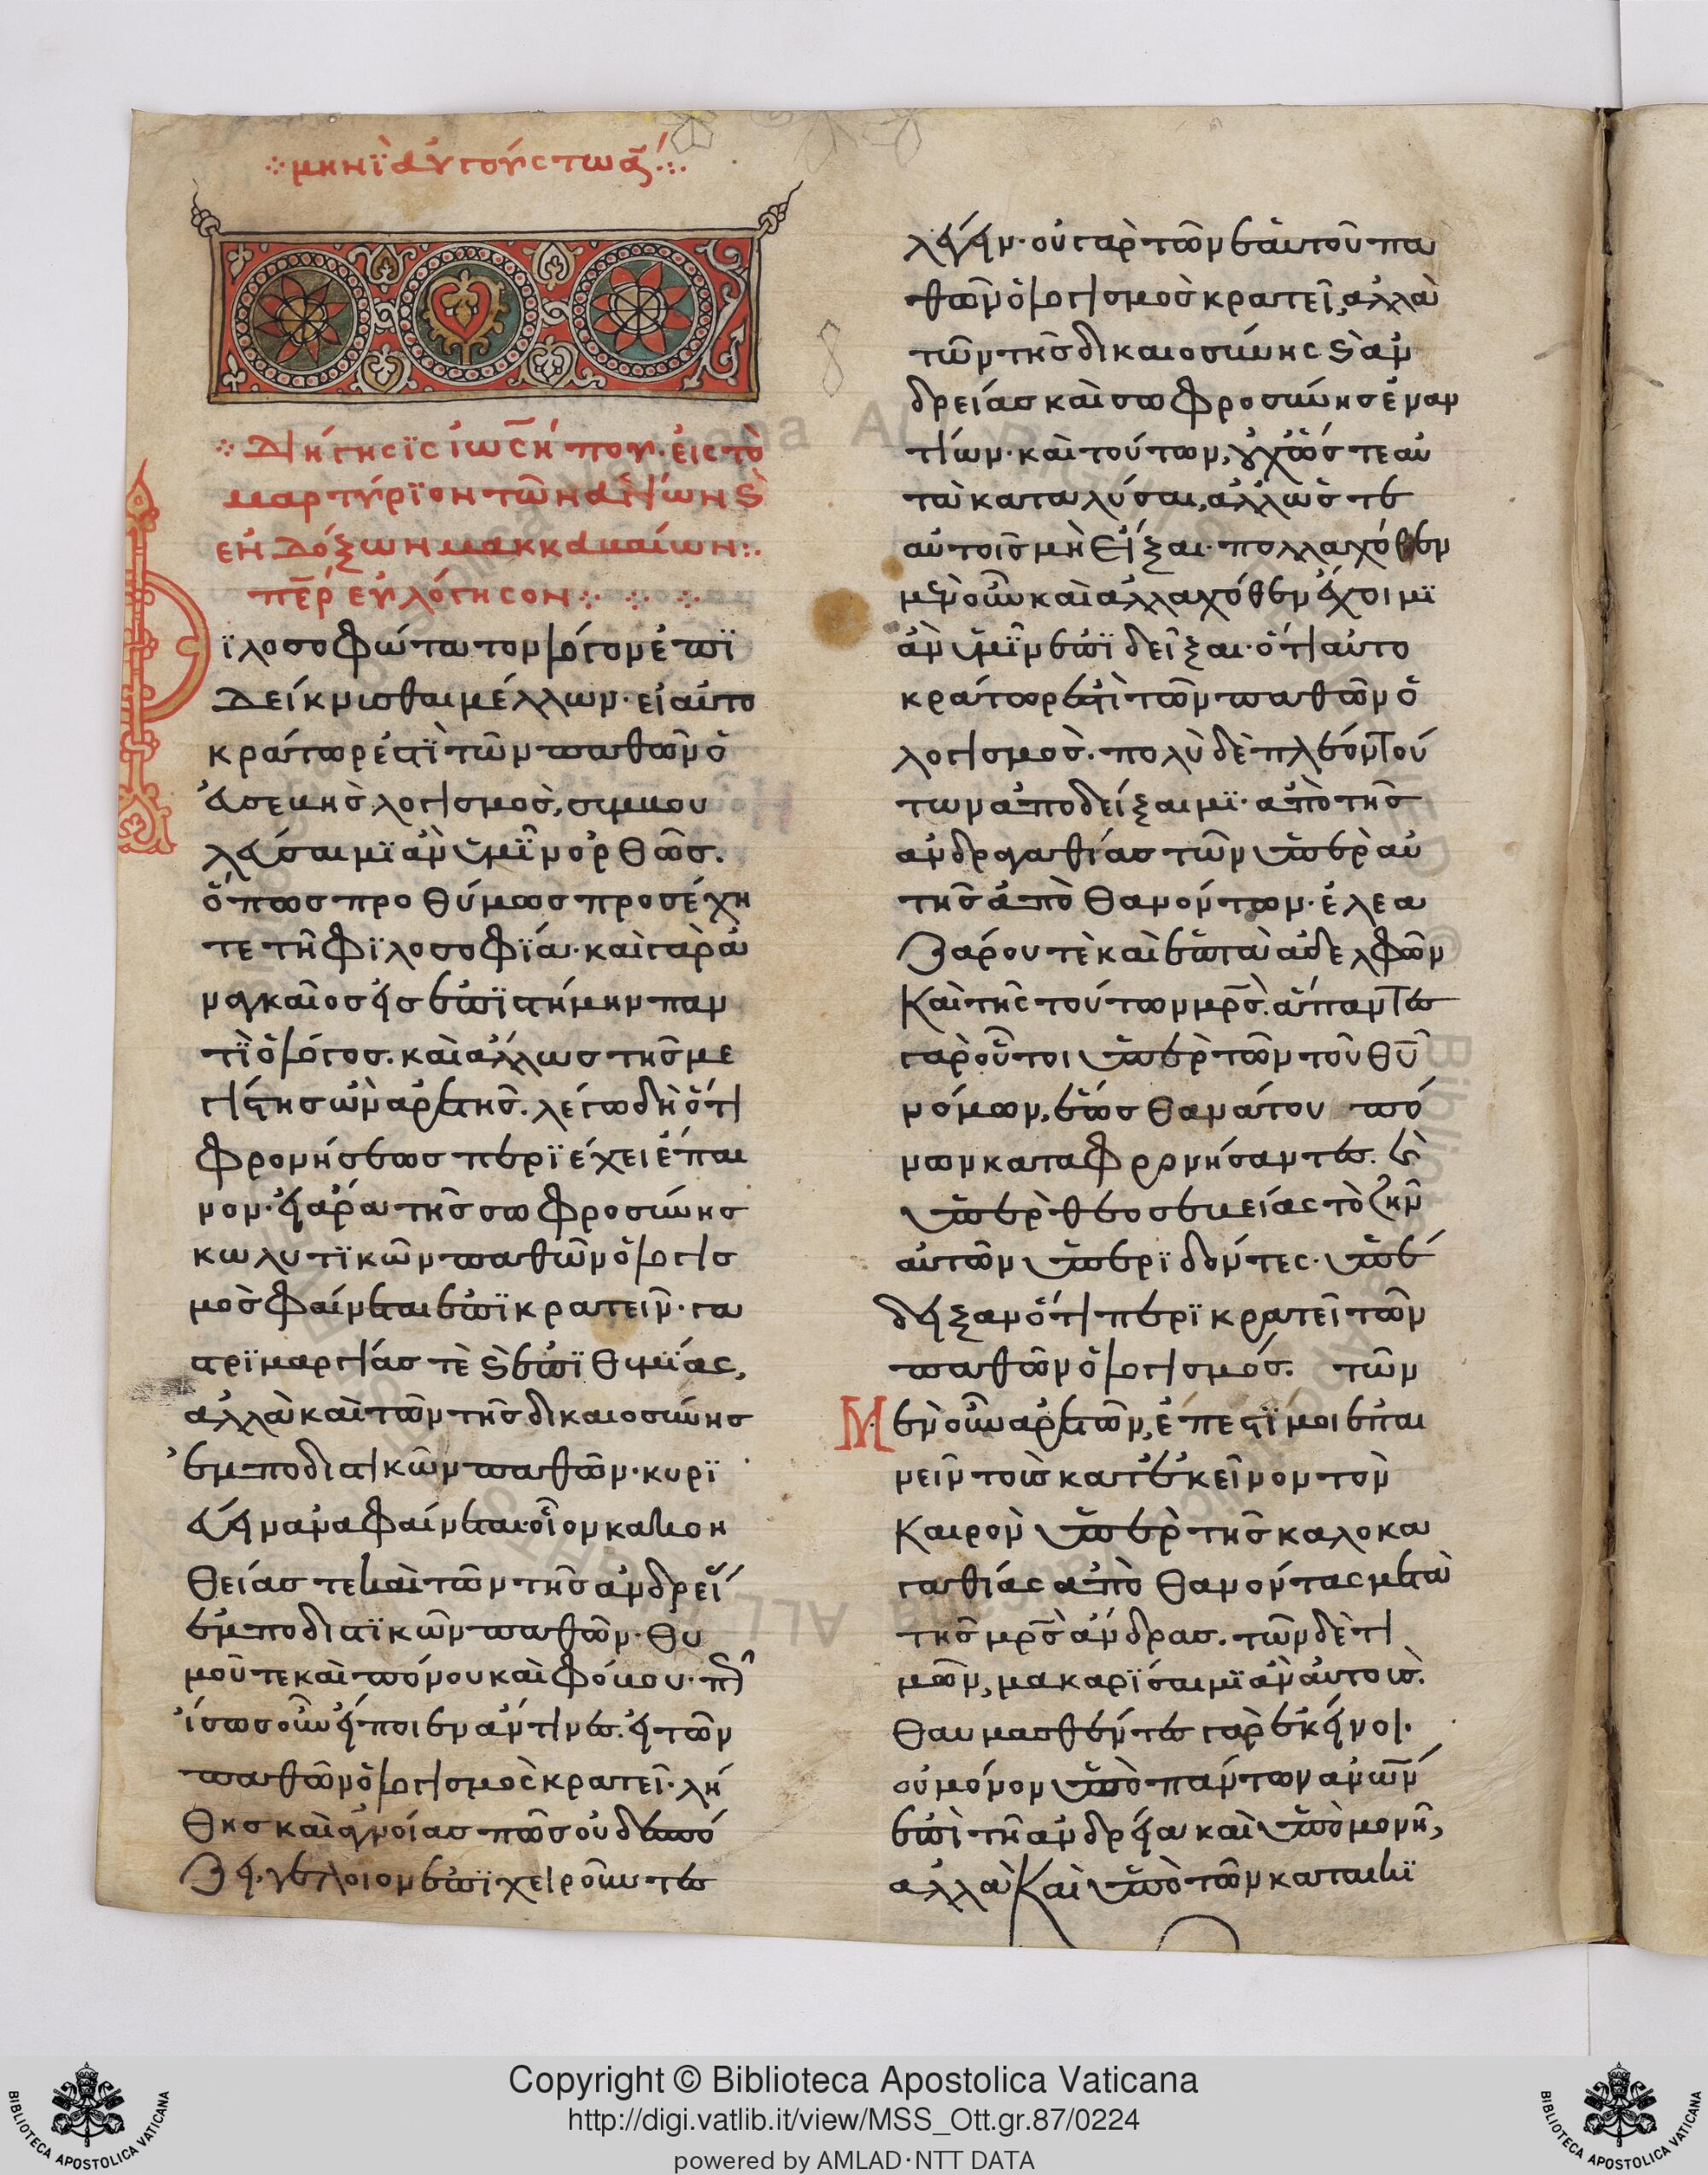 μηνὶ αὐγούστω α
Διήγησις ἰωσήπου· εἰς τὸ
μαρτύριον τῶν ἁγίων καὶ
ἐνδόξων μακκαβαίων:
πε͂ρ εὐλόγησον
Φϊλοσοφώτατον λόγον ἐπϊ
δείκνυσθαι μέλλων· εἰ αὐτο
κράτωρ ἐστὶ τῶν παθῶν ὁ
εὐσεβὴς λογισμὸς, συμβου
λεύσαιμϊ ἂν ὑμῖν ὀρθῶς.
ὅπως προθύμως προσέχη
τε τῆ φϊλοσοφϊα· καὶ γὰρ ἀ
ναγκαῖος εἰς ἐπϊστήμην παν
τὶ ὁ λόγος. καὶ ἄλλως τῆς με
γίστης ὢν ἀρετῆς. λέγω δὴ ὅτι
φρονήσεως περϊέχει ἔπαι
νον· εἰ ἄρα τῆς σωφροσύνης
κωλυτϊκῶν παθῶν ὁ λογισ
μὸς φαίνεται ἐπϊκρατεῖν· γα
στρϊμαργίας τὲ καὶ ἐπϊθυμϊας,
ἀλλὰ καὶ τῶν τῆς δικαιοσύνης
ἐμποδιστικῶν παθῶν· κυρϊ
εύειν ἀναφαίνεται· οἷον κακοη
θείας τε καὶ τῶν τῆς ἀνδρεί
ἐμποδιστϊκῶν παθῶν· θυ
μοῦ τε καὶ πόνου καὶ φόβου· πῶ
ἴσως οὖν εἴποιεν ἄν τινες. εἰ τῶν
παθῶν ὁ λογισμὸς κρατεῖ· λή
θης καὶ ἀγνοίας πῶς οὐ δεσπό
ζει· γελοῖον ἐπϊχειροῦντες
λέγειν· οὐ γὰρ τῶν ἑαυτοῦ πα
θῶν ὁ λογισμὸς κρατεῖ, ἀλλὰ
τῶν τῆς δικαιοσύνης καὶ ἀν
δρείας καὶ σωφροσύνης ἐναν
τίων· καὶ τούτων, οὐχ ὥς τε αὐ
τὰ καταλύσαι, ἀλλ' ὥς τε
αὐτοῖς μὴ εἶξαι· πολλαχόθεν
μὲν οὖν καὶ ἀλλαχόθεν ἔχοιμϊ
ἂν ὑμῖν ἐπϊδεῖξαι· ὅτι αὐτο
κράτωρ ἐστὶ τῶν παθῶν ὁ
λογισμὸς. πολὺ δὲ πλέον τού
των ἀποδείξαιμϊ· ἀπὸ τῆς
ἀνδραγαθίας τῶν ὑπὲρ ἀρε
τῆς ἀποθανόντων· ἐλεα
ζάρου τὲ καὶ ἑπτὰ ἀδελφῶν
καὶ τῆς τούτων μρς. ἅπαντες
γὰρ οὗτοι ὑπὲρ τῶν τοῦ θυ
νόμων, ἕως θανάτου πό
νων καταφρονήσαντες. καὶ
ὑπὲρ θεοσεβείας τὸ ζῆν
αὐτῶν ὑπερϊδόντες. ὑπέ
δειξαν ὅτι περϊκρατεῖ τῶν
παθῶν ὁ λογισμός. τῶν
Μ
ἐν οὖν ἀρετῶν, ἔπεστϊ μοι ἐπαι
νεῖν τοὺς κατ' ἐκεῖνον τὸν
καιρὸν ὑπὲρ τῆς καλοκα
γαθίας ἀποθανόντας μετὰ
τῆς μρς ἄνδρας. τῶν δὲ τι
μῶν, μακαρϊσαιμϊ ἂν αὐτοὺς.
θαυμασθέντες γὰρ ἐκεῖνοι·
οὐ μόνον ὑπὸ πάντων ἀνων
ἐπὶ τῆ ἀνδρεία καὶ ὑπομονῆ,
ἀλλὰ καὶ ὑπὸ τῶν καταικϊ
Copyright © Biblioteca Apostolica Vaticana
http://digi.vatlib.it/view/MSS_Ott.gr.87/0224
powered by AMLAD·NTT DATA
BIBLIOTECA APOSTOLICA VATICANA
BIBLIOTECA APOSTOLICA VATICANA